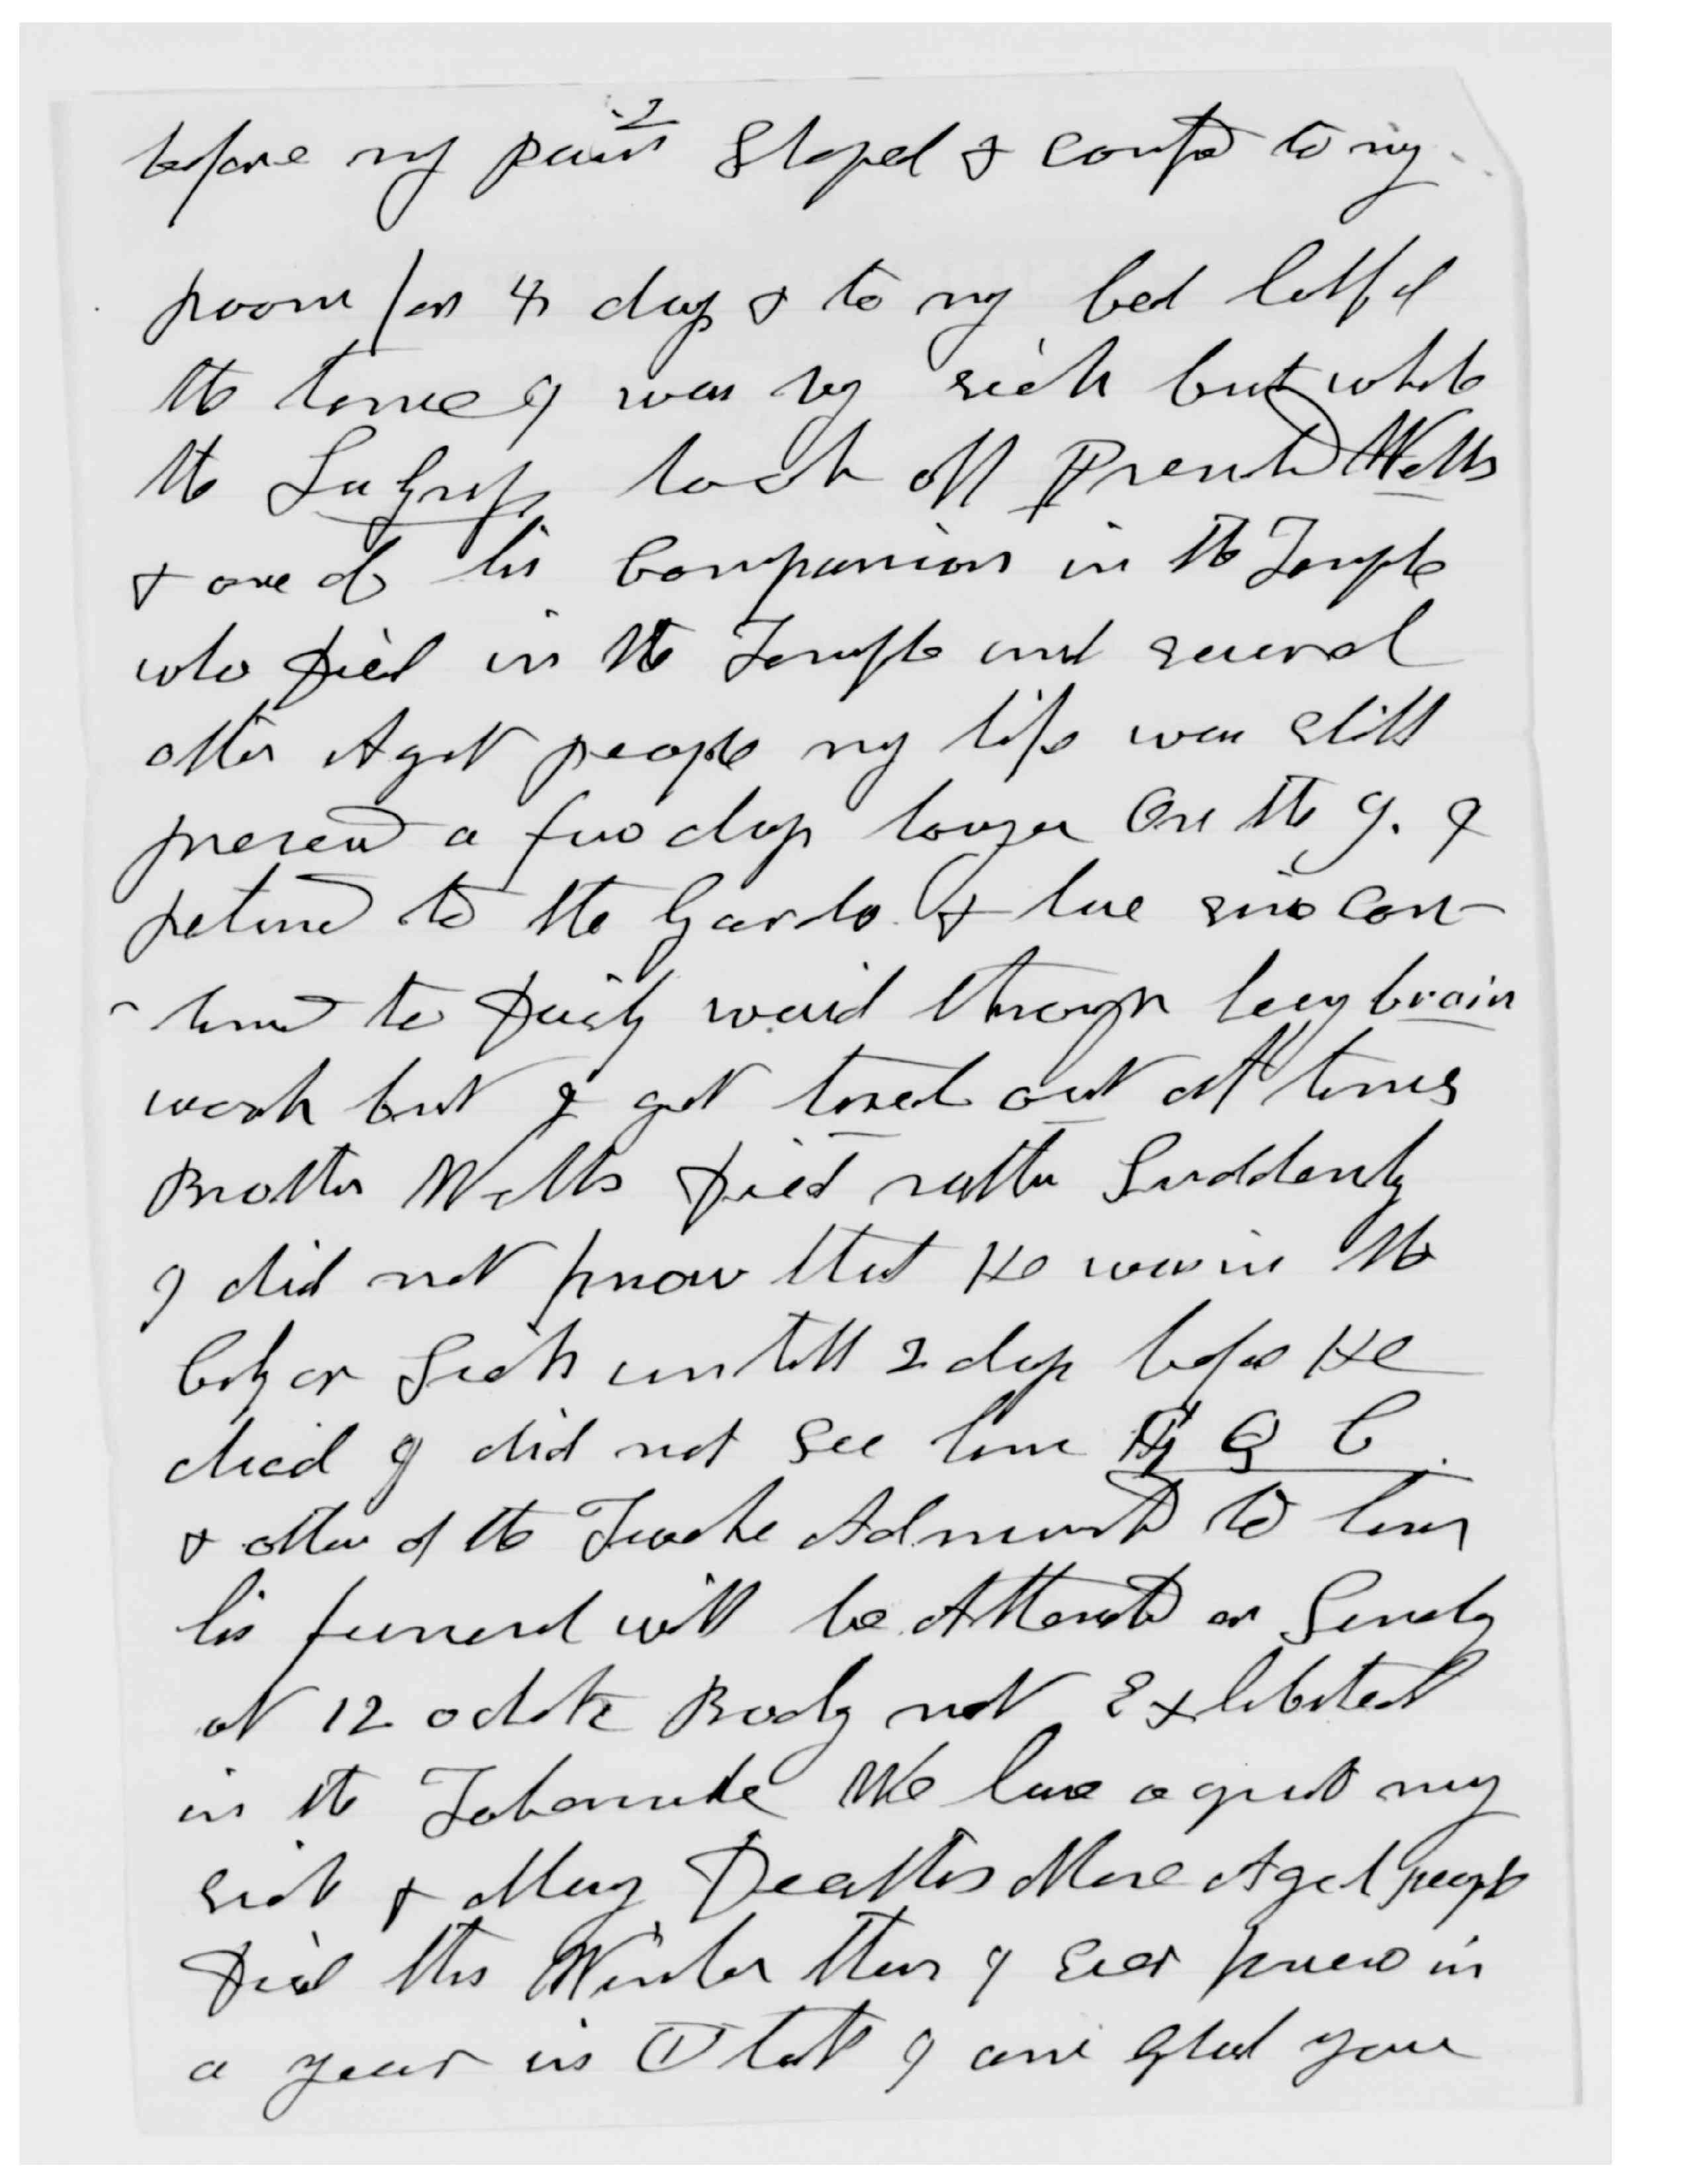 2
before my pains Stoped & confind to my
room for 4 days & to my bed half of
the time I was vry sick but while
the LaGrip took off Presid Wells
& one of his Companions in the Temple
who Died in the Temple and several
other Aged people my life was still
presevd a few days longer On the 9. I
returnd to the Gardo & have since con-
-tinud to Daily waid through hevy brain
work but I get tired out at times
Brother Wells Died rather Suddenly
I did not know that He was in the
City or Sick untill 2 days before He
died I did not see him G Q C
& others of the Twelve Adminstd to him
his funeral will be Attended on Sundy
at 12 oclok Body not Exhibited
in the Tabernacle We have a great many
sick & Many Deaths More Aged people
Died this Winter than I ever knew in
a year in Utah I am glad you